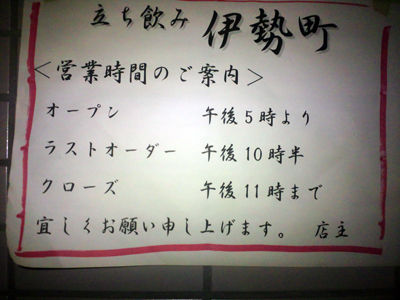 立ち飲み 伊勢町
＜営業時間のご案内＞
オープン 午後5時より
ラストオーダー 午後10時半
クローズ 午後11時まで
宜しくお願い申し上げます。 店主